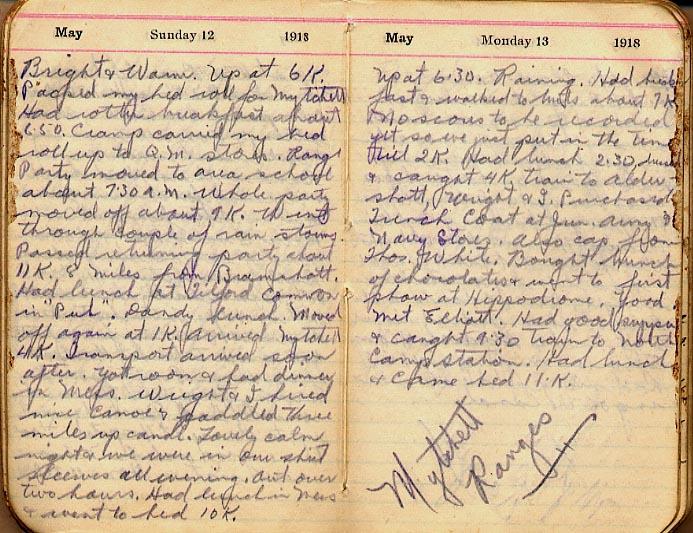 May Sunday 12 1918
Bright & Warm. Up at 6 K.
Packed my bed roll for Mytchett
Had rotten breakfast about
6.50. Cramp carried my bed
roll up to Q.M. stores. Range
Party moved to area school
about 7.30 A.M. Whole party
moved off about 9 K. Went
through couple of rain storms
Passed returning party about
11 K. 8 miles from Bramshott.
Had lunch at Tilford Common
in "Pub". Dandy lunch. Moved
off again at 1 K. Arrived Mytchett
4 K. Transport arrived soon
after. Got room & had dinner
in Mess. Wright & I hired
nice canoe & paddled three
miles up canal. Lovely calm
night & we were in our shirt
sleeves all evening. Out over
two hours. Had lunch in Mess
& went to bed 10 K.
May Monday 13 1918
Up at 6.30. Raining. Had break
fast & walked to butts about 7 K
No scores to be recorded
yet so we just put in the time
till 2 K. Had lunch 2.30,
& caught 4 K train to Alder-
shott, Wright & I. Purchased
Trench Coat at Jun. Army &
Navy Stores. Also cap from
Thos. White. Bought bunch
of chocolates & went to first
show at Hippodrome. Good
Met Elliott. Had good supper
& caught 9.30 train to North
Camp station. Had lunch
& came bed 11 K.
Mytchett
Ranges